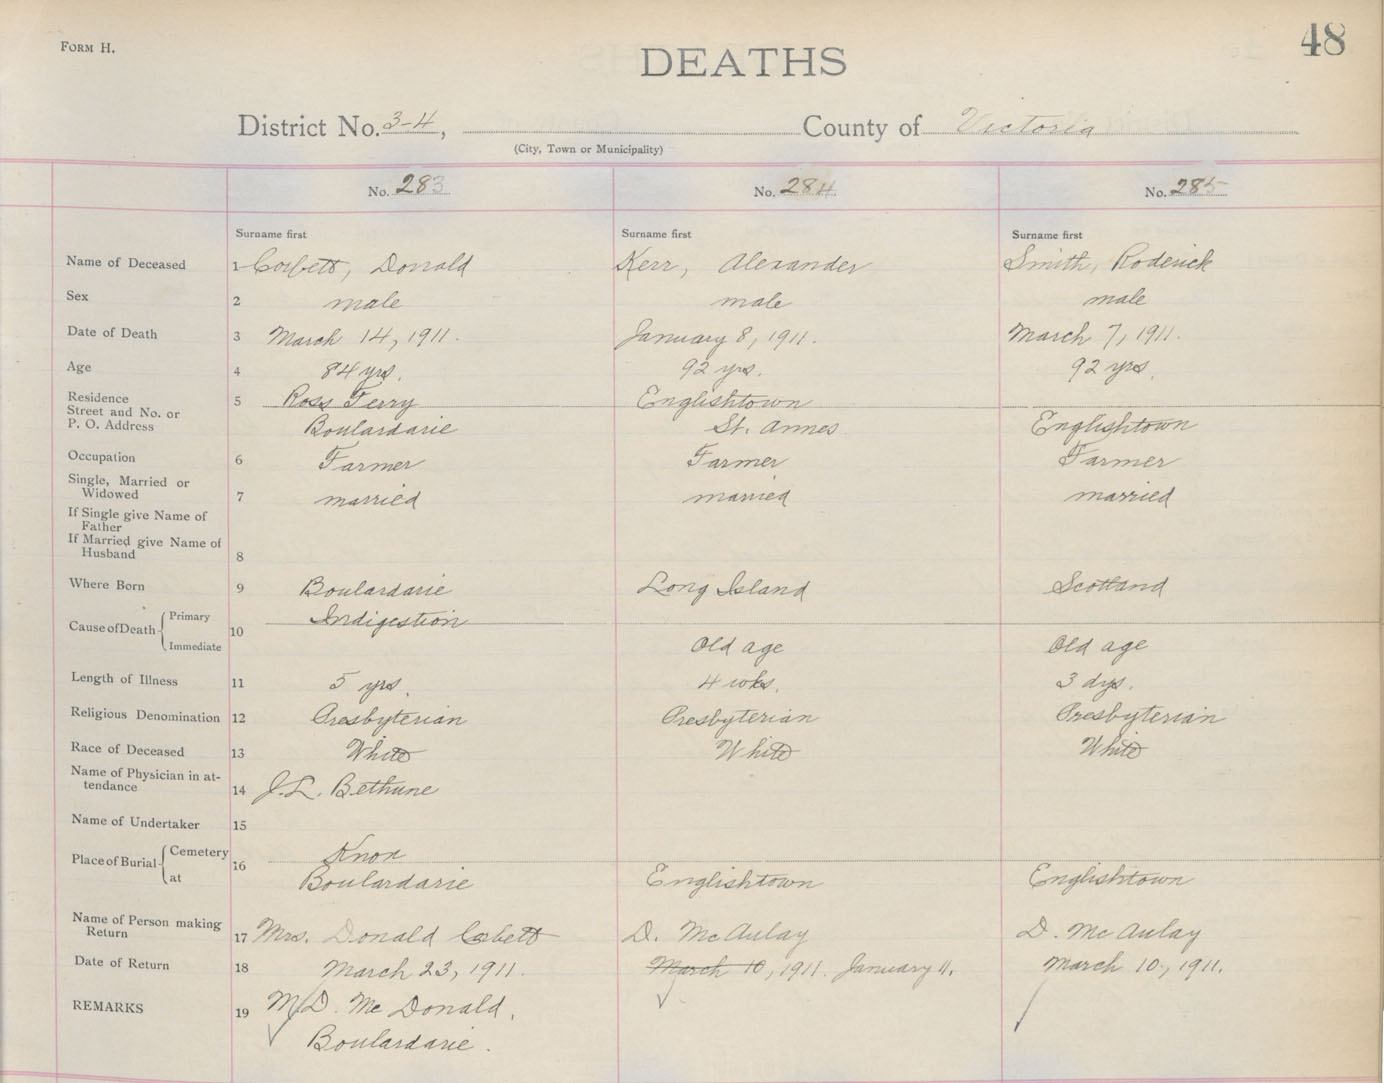 FORM H.
48
DEATHS
District No. 3-4, County of Victoria
(City, Town or Municipality)
No. 283 No. 284 No. 285
Surname first Surname first Surname first
Name of Deceased 1 Corbett, Donald Kerr, Alexander Smith, Roderick
Sex 2 male male male
Date of Death 3 March 14, 1911. January 8, 1911. March 7, 1911.
Age 4 84 yrs. 92 yrs. 92 yrs.
Residence 5 Ross Ferry Englishtown
Street and No. or
P. O. Address Boulardarie St. Annes Englishtown
Occupation 6 Farmer Farmer Farmer
Single, Married or
Widowed 7 married married married
If Single give Name of
Father
If Married give Name of
Husband 8
Where Born 9 Boulardarie Long Island Scotland
Cause of Death Primary 10 Indigestion
Immediate Old age Old age
Length of Illness 11 5 yrs. 4 wks. 3 dys.
Religious Denomination 12 Presbyterian Presbyterian Presbyterian
Race of Deceased 13 White White White
Name of Physician in at-
tendance 14 J.L. Bethune
Name of Undertaker 15
Place of Burial Cemetery 16 Knox
at Boulardarie Englishtown Englishtown
Name of Person making
Return 17 Mrs. Donald Corbett D. McAulay D. McAulay
Date of Return 18 March 23, 1911. March 10, 1911. January 11. March 10, 1911.
REMARKS 19 M.D. McDonald,
Boulardarie.